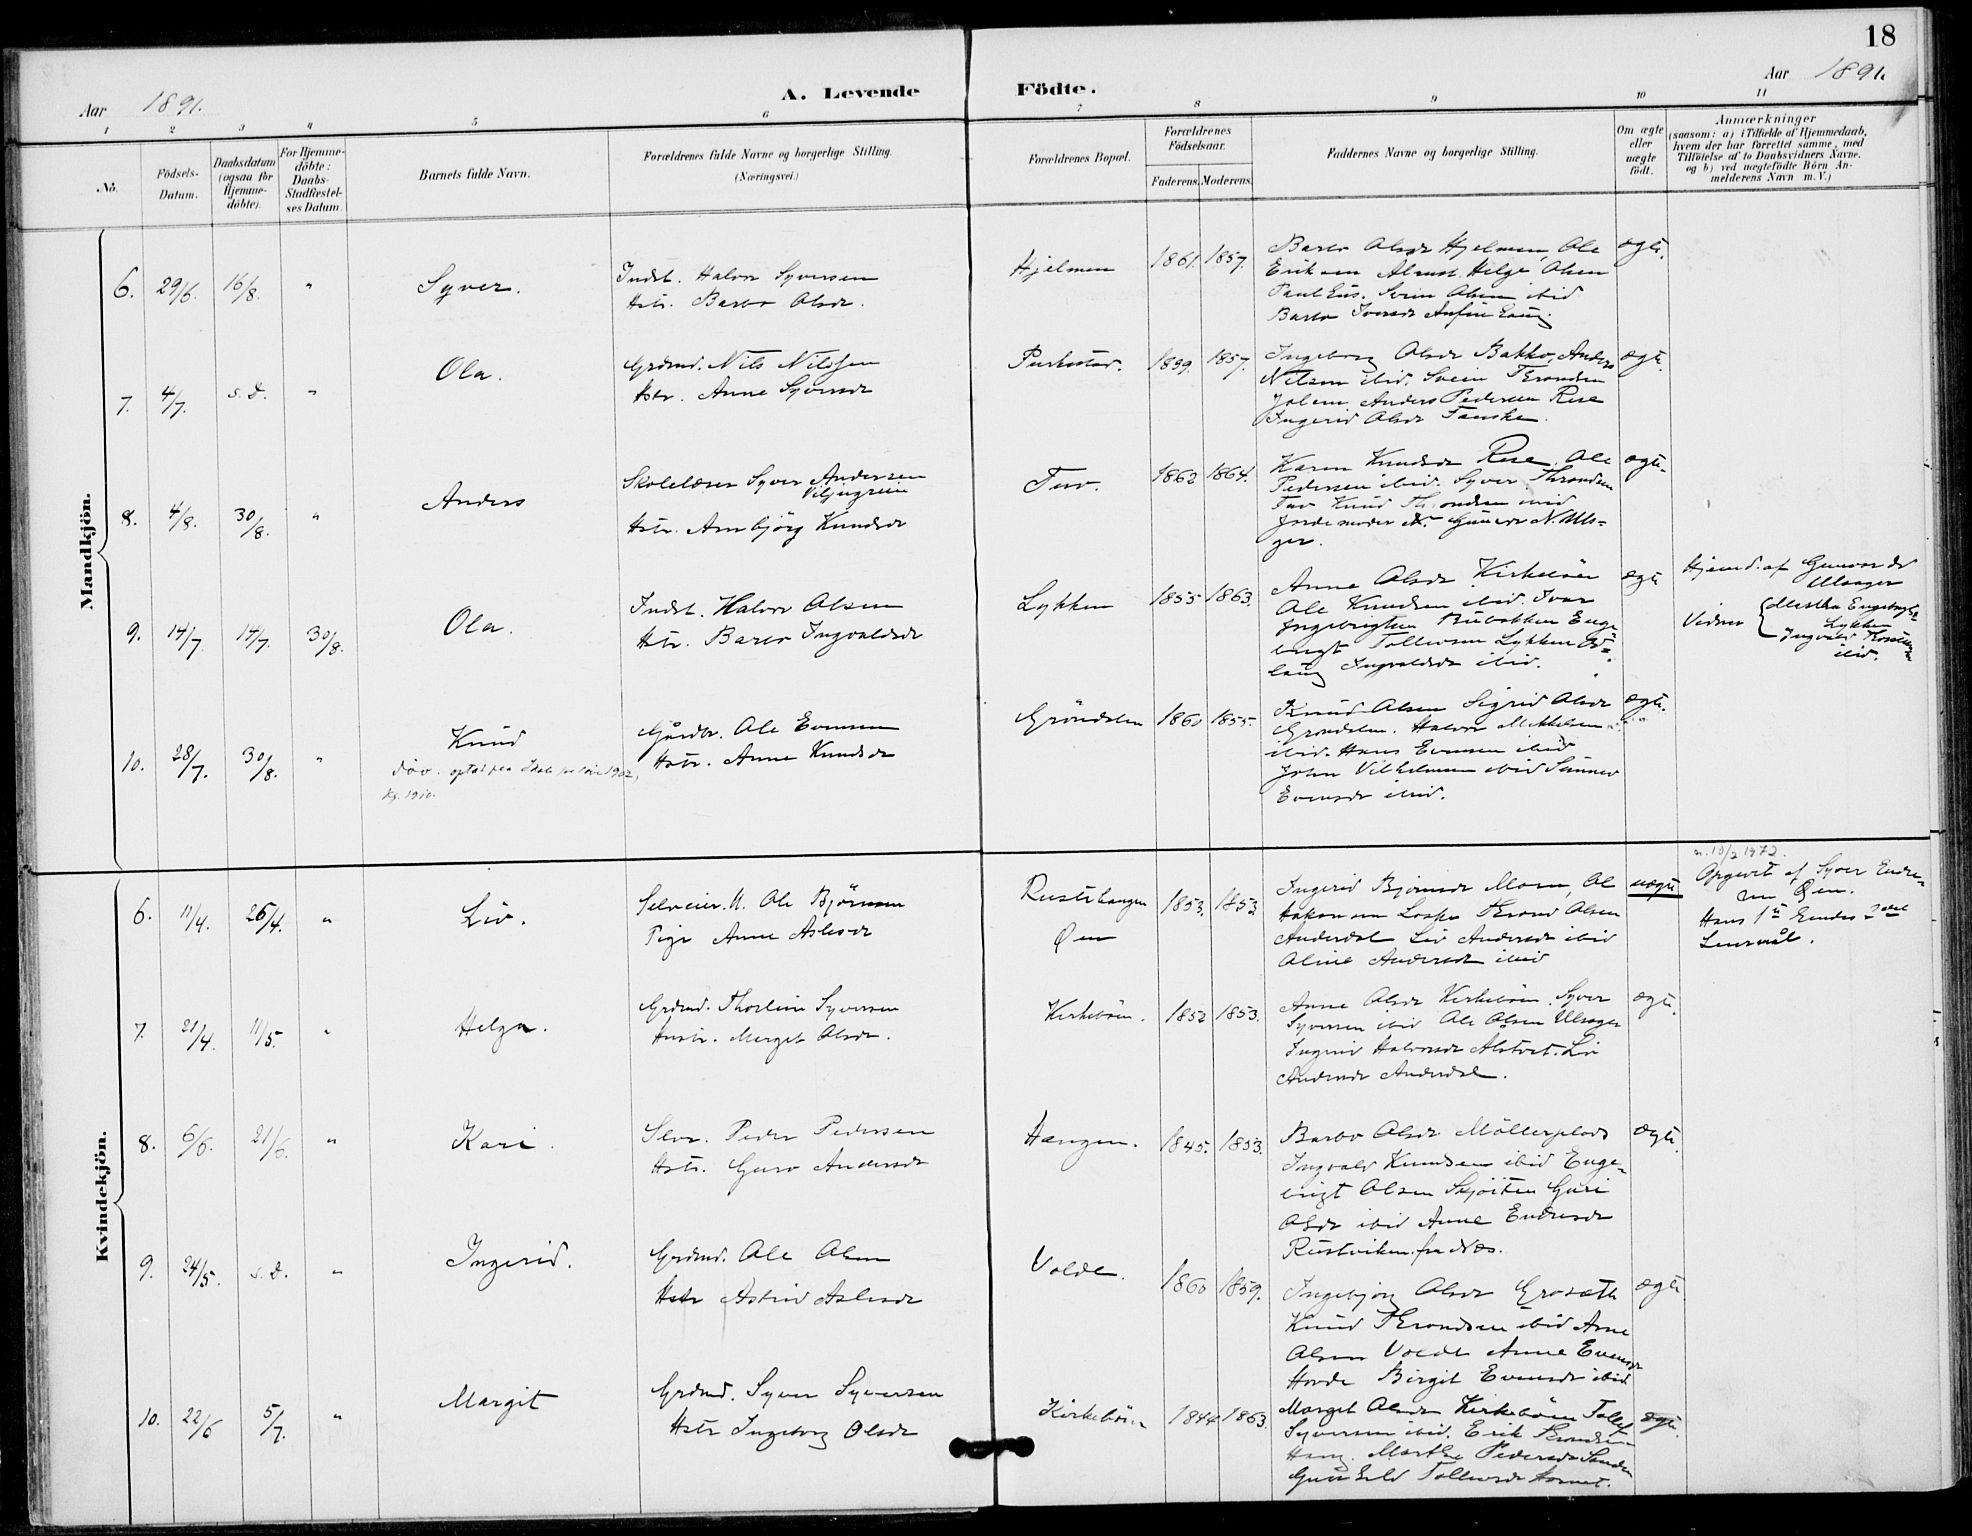 18
Aar 1891.
A. Levende Födte.
Aar 1891.
1 2 3 4 5 6 7 8 9 10 11
No.
Födsels-Datum.
Daabsdatum (ogsaa for Hjemme-döbte).
For Hjemme-döbte: Daabs-Stadfæstel-ses Datum.
Barnets fulde Navn.
Forældrenes fulde Navne og borgerlige Stilling.
(Næringsvei.)
Forældrenes Bopæl.
Forældrenes Födselsaar.
Faderens. Moderens.
Faddernes Navne og borgerlige Stilling.
Om ægte eller uægte födt.
Anmærkninger
(saasom: a) i Tilfælde af Hjemmedaab,
hvem der har forrettet samme, med
Tilföielse af to Daabsvidners Navne,
og b) ved uægtefödte Börn An-
melderens Navn m. V.)
Mandkjön.
6. 29/6. 16/8. " Syver.
Indst. Halvor Syversen
Hstr. Barbo Olsdr.
Hjelmen 1861. 1857.
Barbo Olsdr Hjelmen, Ole
Helge Olsen
Svein Olsen ibid
Barbo Iversdr
ægte.
7. 4/7. s. d. " Ola.
Grdmd. Nils Nilssen
Hstr. Anne Syversdr
1859. 1857.
Ingeborg Olsdr Bakko, Anders
Nilsen ibid. Svein Thronsen
Anders Pedersen Rese
Ingerid Olsdr
ægte.
8. 4/8. 30/8. " Anders
Skolelærer Syver Andersen
Viljugrein
Hstr. Ambjörg Knudsdr
Tuv. 1862 1864.
Karen Knudsdr Rese. Ole
Pedersen ibid. Syver Throndsen
Tuv Knud Throndsen ibid
Jordemoder Gunvor N. Uls-
ger.
ægte.
9. 14/7. 14/7. 30/8. Ola.
Indst. Halvor Olsen
Hstr. Barbo Ingvaldsdr
Lykken 1855 1863.
Anne Olsdr Kirkeböen
Ole Knudsen ibid. Ivar
Ingebrigtsen Enge-
brigt Tollevsen Lykken
laug Ingvaldsdr ibid.
ægte
Hjemd. af Gunvor
Ulsager
Vidner Engebrigtsdr
Lykken
Ingvald
ibid.
10. 28/7. 30/8. " Knud
döv. 1902,
Kf. 1910.
Gårdbr. Ole Evensen
Hstr. Anne Knudsdr
Gröndalen 1860 1855.
Knud Olsen Sigrid Olsdr
Gröndalen. Halvor Mikkelsen
ibid. Hans Evensen ibid
John Vilhelmsen ibid Synnev
Evensdr ibid.
ægte.
Kvindekjön.
6. 11/4. 26/4. " Liv.
Selveier. U. Ole Björnsen
Pige Anne Aslesdr
Rustehaugen
Öen
1853. 1853
Ingerid Björnsdr Moen, Ol
Hakonsen Trond Olsen
Anderdal Liv Andersdr ibid
Oline Andersdr ibid
uægte
10/2 1972.
Opgivet af Syver Endre-
sen Öen.
Hans 1ste Hendes 2det
Leiermål.
7. 21/4. 11/5. " Helga.
Grdmd. Thorstein Syversen
Hustr. Margit Olsdr.
Kirkeböen. 1852 1853.
Anne Olsdr Kirkeböen. Syver
Syversen ibid Ole Olsen Ulsager
Ingerid Halvorsdr Alstvet. Liv
Andersdr Anderdal.
ægte.
8. 6/6. 21/6. " Kari.
Slvr. Peder Pedersen
Hstr. Guro Andersdr
Haugen. 1845. 1853.
Barbo Olsdr Möllerplads
Ingvald Knudsen ibid Enge-
brigt Olsen Skjöiten Guri
Olsdr ibid Anne Endresdr
Rustviken fra Næs.
ægte.
9. 24/5. s. d. " Ingerid.
Grdmd. Ole Olsen
Hstr Astrid Aslesdr
Volde. 1860 1859.
Ingebjörg Olsdr Grosæth
Knud Throndsen ibid Arne
Olsen Volde Anne Evensdr
Hovde Birgit Evensdr ibid
ægte
10. 22/6 5/7. " Margit
Grdmd. Syver Syversen
Hstr Ingeborg Olsdr
Kirkeböen 1844 1863.
Margit Olsdr Kirkeböen Tollef
Syversen ibid. Erik Throndsen
Haug. Marthe Pedersdr Sanden
Gunhild Tollevsdr
ægte.